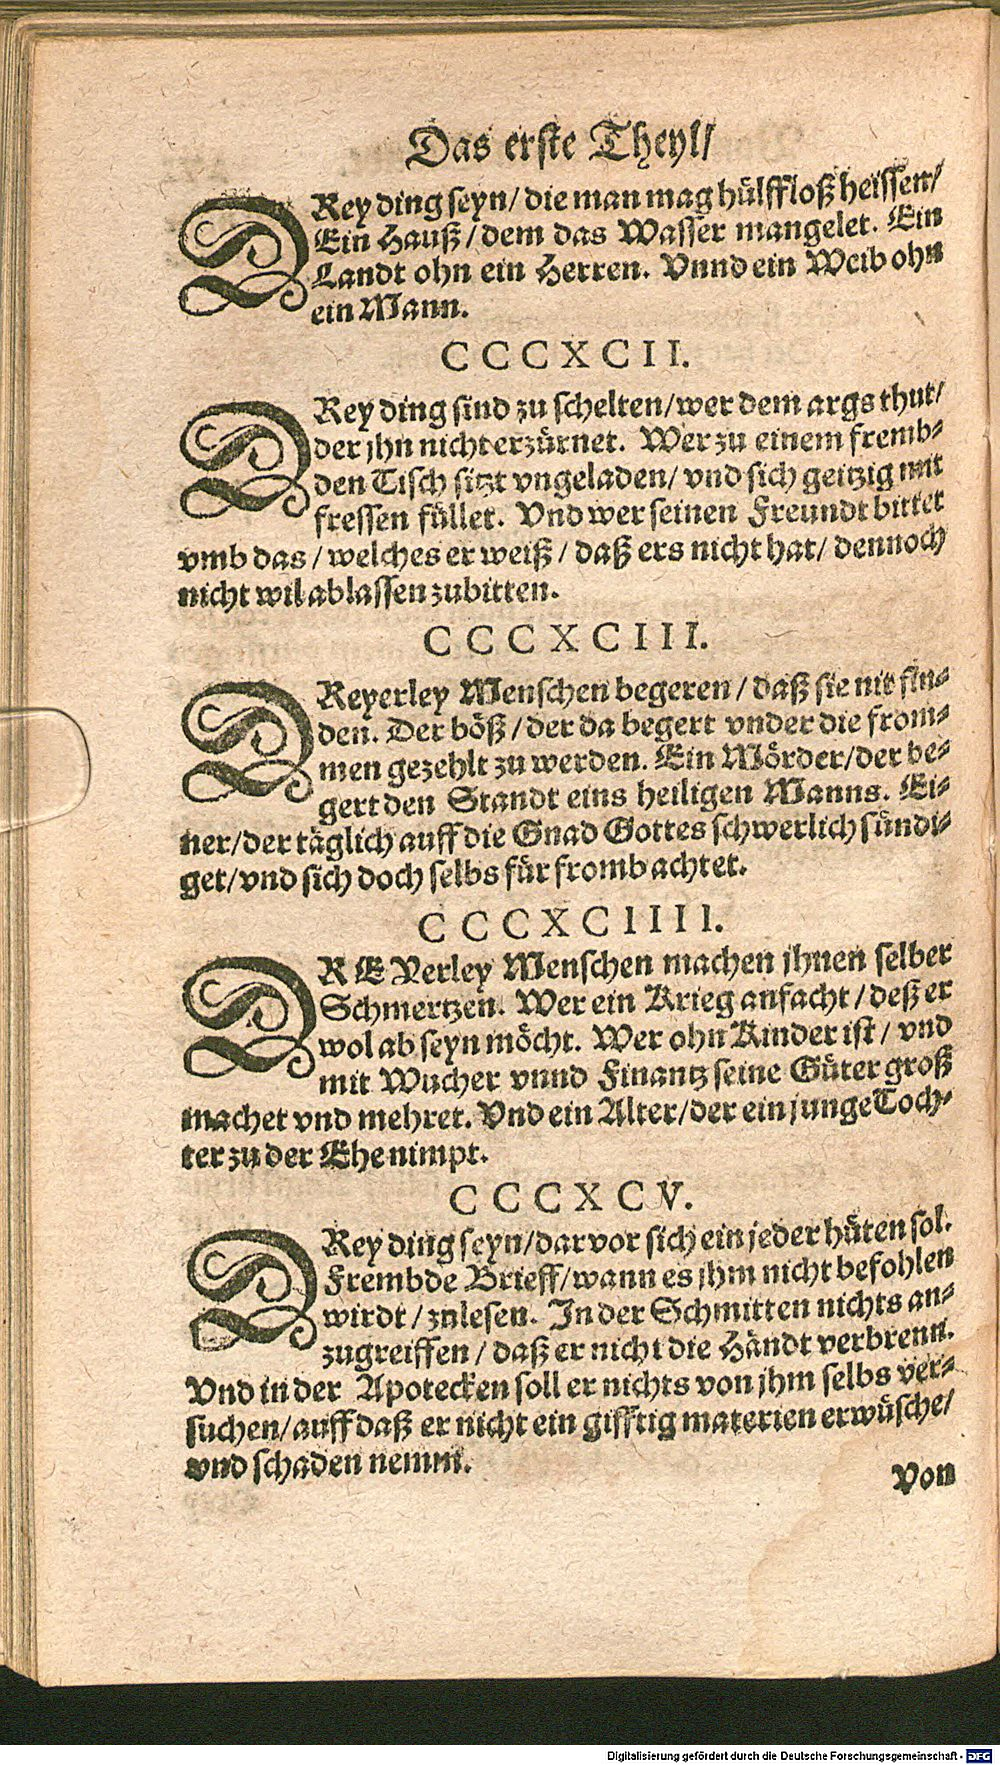 Das erste Theyl/
DRey ding seyn/ die man mag hülffloß heissen/
Ein Hauß/ dem das Wasser mangelet. Ein
Landt ohn ein Herren. Vnnd ein Weib ohn
ein Mann.
CCCXCII.
DRey ding sind zu schelten/ wer dem args thut/
der jhn nicht erzürnet. Wer zu einem fremb-
den Tisch sitzt vngeladen/ vnd sich geitzig mit
fressen füllet. Vnd wer seinen Freundt bittet
vmb das/ welches er weiß/ daß ers nicht hat/ dennoch
nicht wil ablassen zubitten.
CCCXCIII.
DReyerley Menschen begeren/ daß sie nit fin-
den. Der böß/ der da begert vnder die from-
men gezehlt zu werden. Ein Mörder/ der be-
gert den Standt eins heiligen Manns. Ei-
ner/ der täglich auff die Gnad Gottes schwerlich sündi-
get/ vnd sich doch selbs für fromb achtet.
CCCXCIIII.
DREYerley Menschen machen jhnen selber
Schmertzen. Wer ein Krieg anfacht/ deß er
wol ab seyn möcht. Wer ohn Kinder ist/ vnd
mit Wucher vnnd Finantz seine Güter groß
machet vnd mehret. Vnd ein Alter/ der ein junge Toch-
ter zu der Ehe nimpt.
CCCXCV.
DRey ding seyn/ darvor sich ein jeder hüten sol.
Frembde Brieff/ wann es jhm nicht befohlen
wirdt/ znlesen. In der Schmitten nichts an-
zugreiffen/ daß er nicht die Händt verbrenn.
Vnd in der Apotecken soll er nichts von jhm selbs ver-
suchen/ auff daß er nicht ein gifftig materien erwüsche/
vnd schaden nemm.
Von
Digitalisierung gefördert durch die Deutsche Forschungsgemeinschaft - DFG